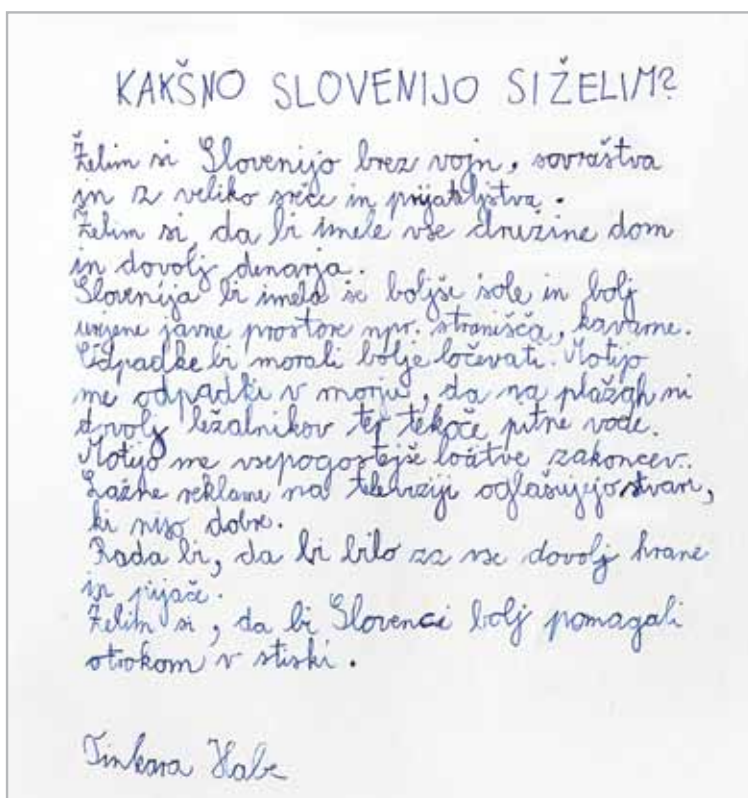 KAKŠNO SLOVENIJO SI ŽELIM?
Želim si Slovenijo brez vojn, sovraštva
in z veliko sreče in prijateljstva.
Želim si, da bi imele vse družine dom
in dovolj denarja.
Slovenija bi imela še boljše šole in bolj
urejene javne prostore npr. stranišča, kavarne.
Odpadke bi morali bolje ločevati. Motijo
me odpadki v morju, da na plažah ni
dovolj ležalnikov ter tekoče pitne vode.
Motijo me vsepogostejše ločitve zakoncev.
Lažne reklame na televiziji oglašujejo stvari,
ki niso dobre.
Rada bi, da bi bilo za vse dovolj hrane
in pijače.
Želim si, da bi Slovenci bolj pomagali
otrokom v stiski.
Tinkara Habe